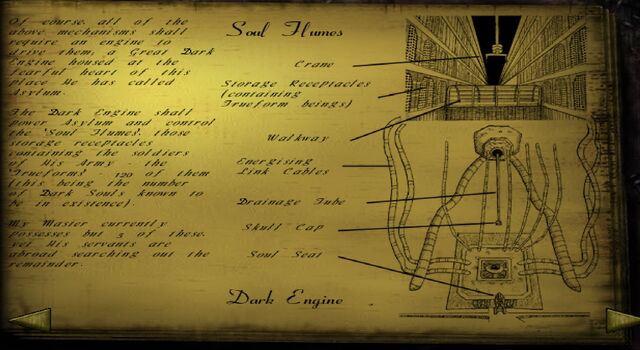 Of course, all of the
above mechanisms shall
require an engine to
drive them; a Great Dark
Engine housed at the
fearful heart of this
place He has called
Asylum.
The Dark Engine shall
power Asylum and control
the 'Soul Flumes', those
storage receptacles
containing the soldiers
of His Army - the
'Trueforms' - 120 of them
(this being the number
of Dark Souls known to
be in existence).
My Master currently
possesses but 5 of these,
yet His servants are
abroad searching out the
remainder.
Soul Flumes
Crane
Storage Receptacles
(containing
Trueform beings)
Walkway
Energising
Link Cables
Drainage Tube
Skull Cap
Soul Seat
Dark Engine